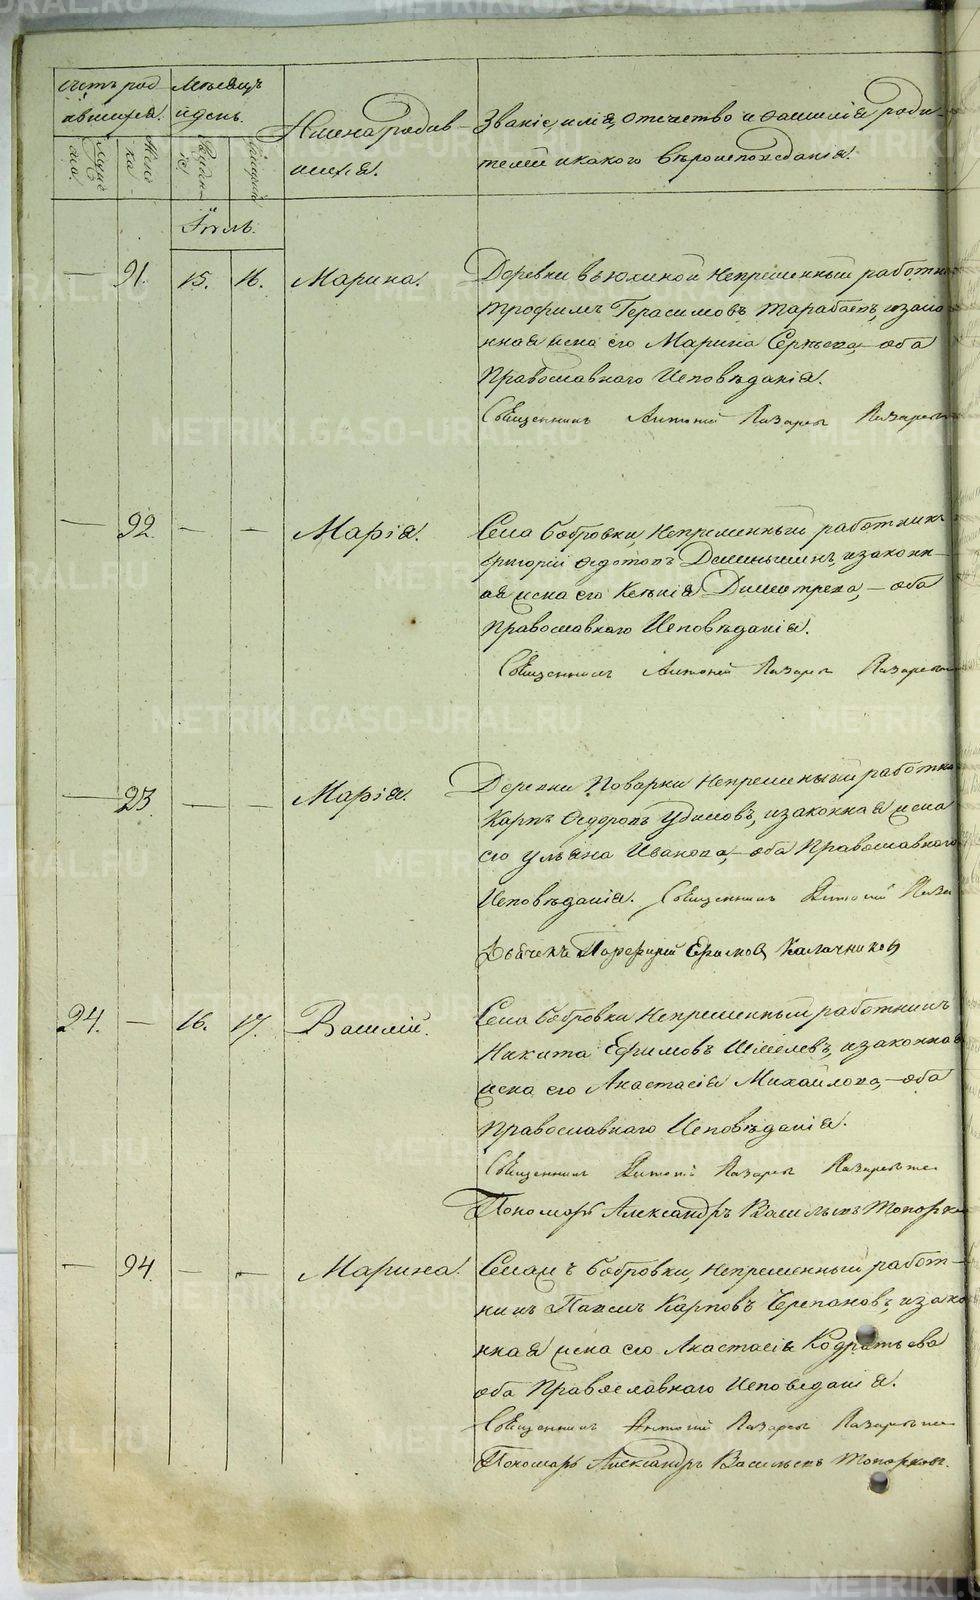 Счетъ род-
ившихся.
Мѣсяцъ
и день.
Имена родив-
шихся.
Званіе, имя, отчество и фамилія роди-
телей и какого вѣроисповѣданія.
Іюль.
— 91. 15. 16. Марина.
Деревни Вьюхиной Непременный работни
Трофимъ Герасимовъ Тарабаевъ, и зако
нная жена его Марина Сергѣева, — оба
Православнаго Исповѣданія.
Священникъ Антоній Лазаревъ
— 92. — — Марія.
Села Бобровки, Непременный работникъ
Григорій Федотовъ и законн-
ая жена его Ксенія Димитрева, — оба
Православнаго Исповѣданія.
Священникъ Антоній Лазаревъ
— 93. — — Марія.
Деревни Поварни Непременный работни
Карпъ Федоровъ Удимовъ, и законная жена
его Ульяна Иванова, — оба Православнаго
Исповѣданія. Священникъ Антоній Лаза
Дьячекъ Порфирій Ераковъ Калачниковъ
94. — 16. 17. Василій.
Села Бобровки Непременный работникъ
Никита Ефимовъ Шмелевъ, и законная
жена его Анастасія Михайлова, — оба
Православнаго Исповѣданія.
Священникъ Антоній Лазаревъ
Пономарь Александръ Васильевъ Топорко
— 94 — — Марина.
Села Бобровки, Непременный работ-
никъ Павелъ Карповъ Черепановъ, и зако
нная жена его Анастасія Кодратьева
оба Православнаго Исповѣданія.
Священникъ Антоній Лазаревъ
Пономарь Александръ Васильевъ Топорковъ.
METRIKI.GASO-URAL.RU